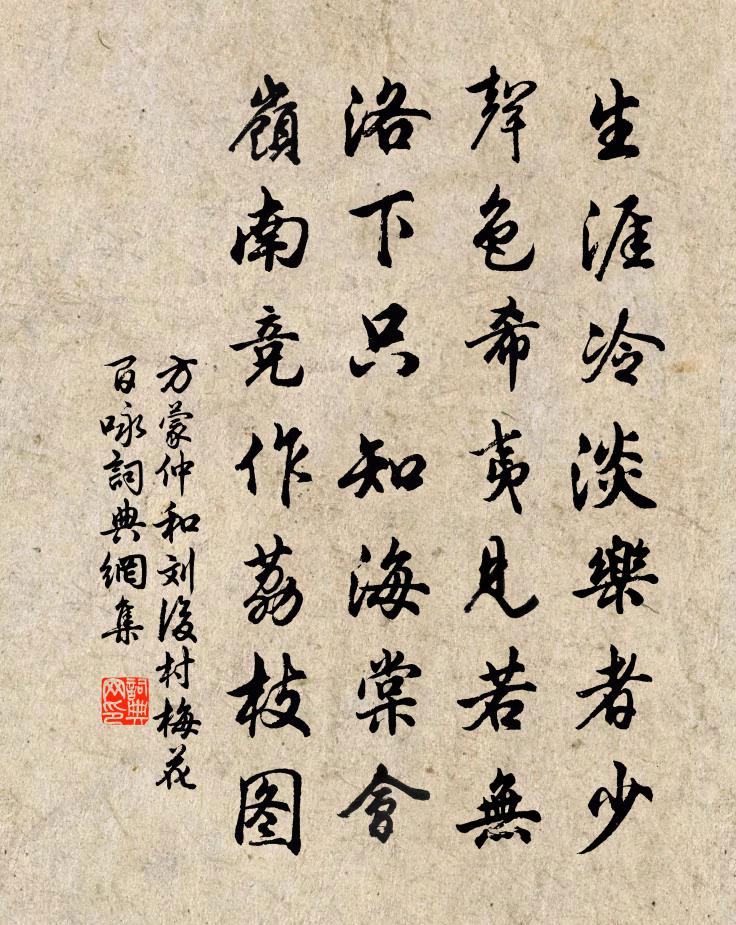 生涯冷淡樂者少
聲色希夷見若無
洛下只知海棠會
嶺南竞作荔枝图
方蒙仲和刘後村梅花
百咏詞典網集
詞典
网印